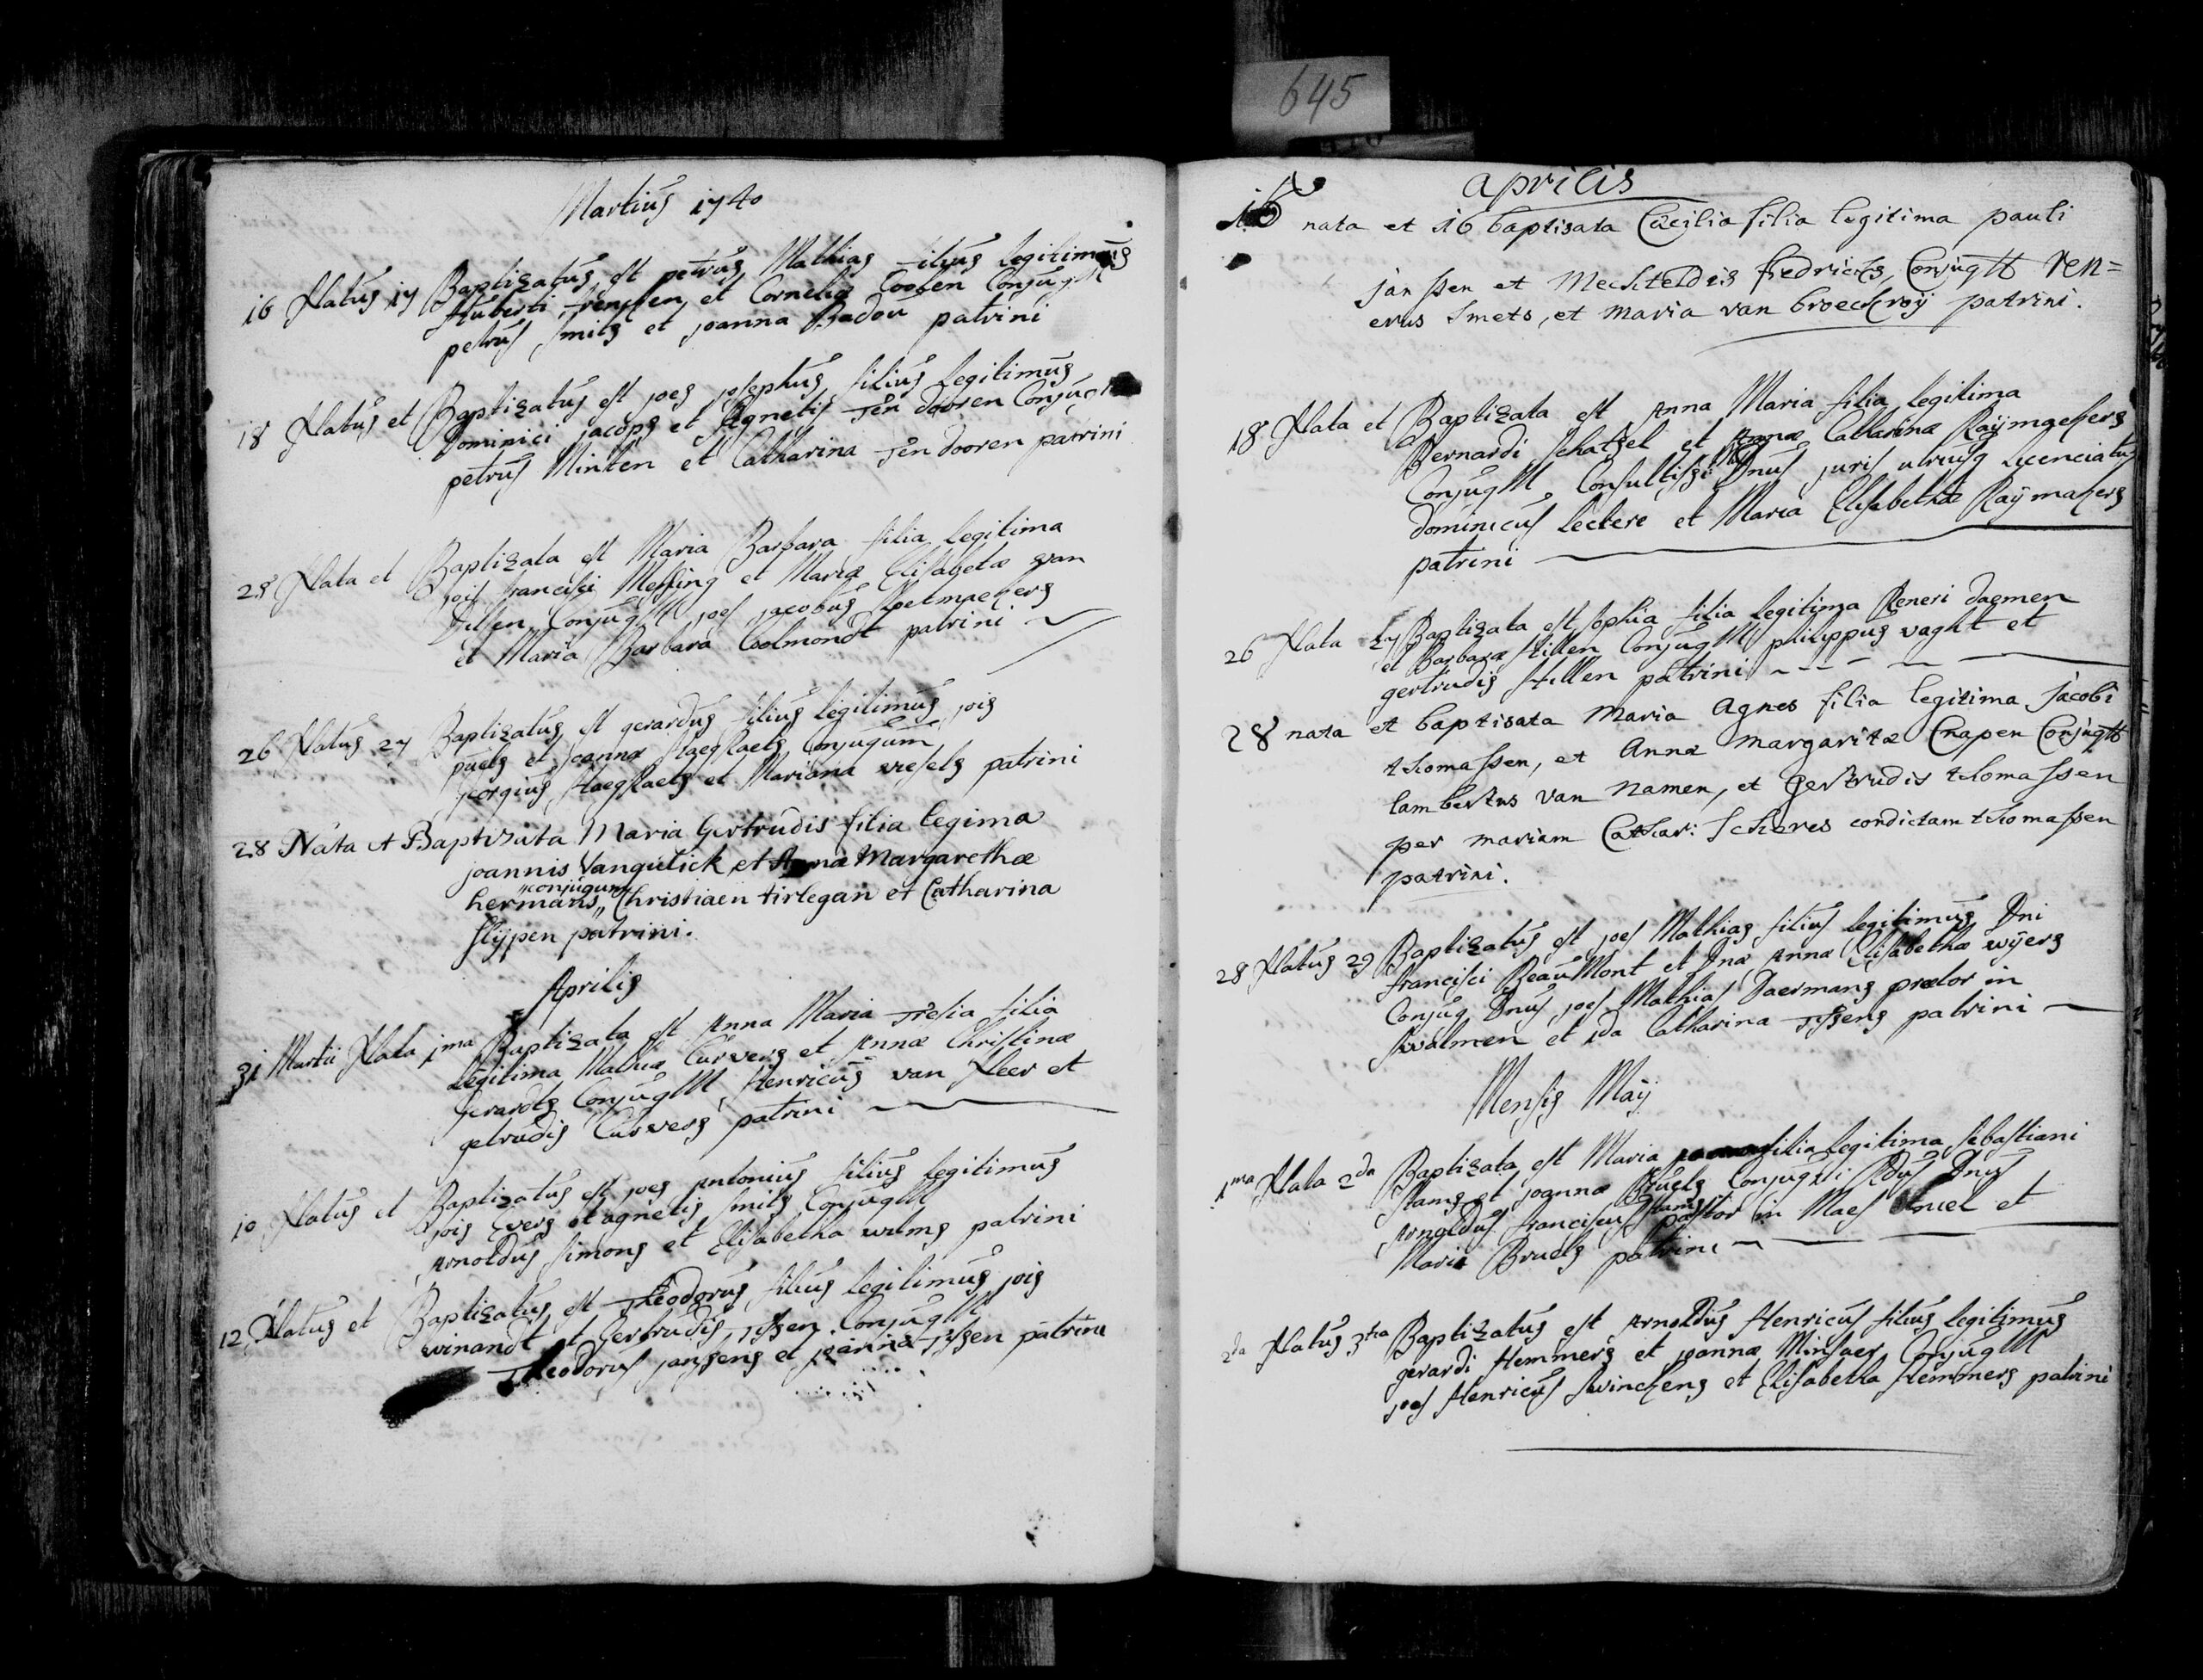 645
Martius 1740
16 Natus 17 Baptizatus est petrus Mathias filius legitimus
Huberti frencken et Cornelia Coolen Conjugum
petrus smits et joanna Badou patrini
18 Natus et Baptizatus est joes josephus filius legitimus
Dominici jacops et Agnetis Ten dooren Conjug
petrus Minten et Catharina Ten dooren patrini
25 Nata et Baptizata est Maria Barbara filia legitima
jois francisci Messing et Mariæ Elisabetæ van
Dillen Conjugum joes jacobus
et Maria Barbara Coolmondt patrini
26 Natus 27 Baptizatus est gerardus filius legitimus jois
puels et joannæ Conjugum
georgius et Mariana wesels patrini
28 Nata et Baptizata Maria Gertrudis filia legima
joannis Vangulick et Annæ Margarethæ
hermans "conjugum" Christiaen tirlegan et Catharina
Slijpen patrini.
Aprilis
31 Martii Nata 1ma Baptizata est Anna Maria Tresia filia
legitima Mathiæ Curvers et Annæ Christinæ
gerardts Conjugum Henricus van Neer et
getrudis Curvers patrini
10 Natus et Baptizatus est joes Antonius filius legitimus
jois Evers et agnetis smits Conjugum
Arnoldus simons et Elisabetha wilms patrini
12 Natus et Baptizatus est Theodorus filius legitimus jois
winandt et Gertrudis Tissen Conjugum
Theodorus janssens et joanna Tissen patrini
Aprilis
15 nata et 16 baptisata Cæcilia filia legitima pauli
janssen et Mechteldis fredricks Conjugum Ren=
erus Smets, et maria van broeckroij patrini.
18 Nata et Baptizata est Anna Maria filia legitima
Bernardi schatzel et Annæ Catharinæ Raijmackers
Conjugum Consultissi: Dnus juris utriusq Licenciatus
Dominicus leclere et Maria Elisabetha Raijmakers
patrini
26 Nata 27 Baptizata est sophia filia legitima Reneri daemen
et Barbaræ stillen Conjugum philippus vaght et
gertrudis stillen patrini
28 nata et baptisata Maria Agnes filia legitima Jacobi
thomassen, et Annæ margaritæ Cnapen Conjugum
lambertus van Namen, et Gertrudis thomassen
per mariam Cathar: Scheres condictam thomassen
patrini.
28 Natus 29 Baptizatus est joes Mathias filius legitimus Dni
francisci BeauMont et Dnæ Annæ Elisabethæ wijers
Conjug Dnus joes Mathias Daermans prætor in
swalmen et Ida Catharina Tissens patrini
Mensis Maij
1ma Nata 2da Baptizata est Maria filia legitima sebastiani
stams et joannæ Bruels Conjug: Rdus Dnus
Arnoldus franciscus stams pastor in Maes et
Maria Bruels patrini
2da Natus 3tia Baptizatus est Arnoldus Henricus filius legitimus
gerardi Hemmers et joannæ Minsaer Conjugum
joes Henricus swinckens et Elisabetha Hemmers patrini